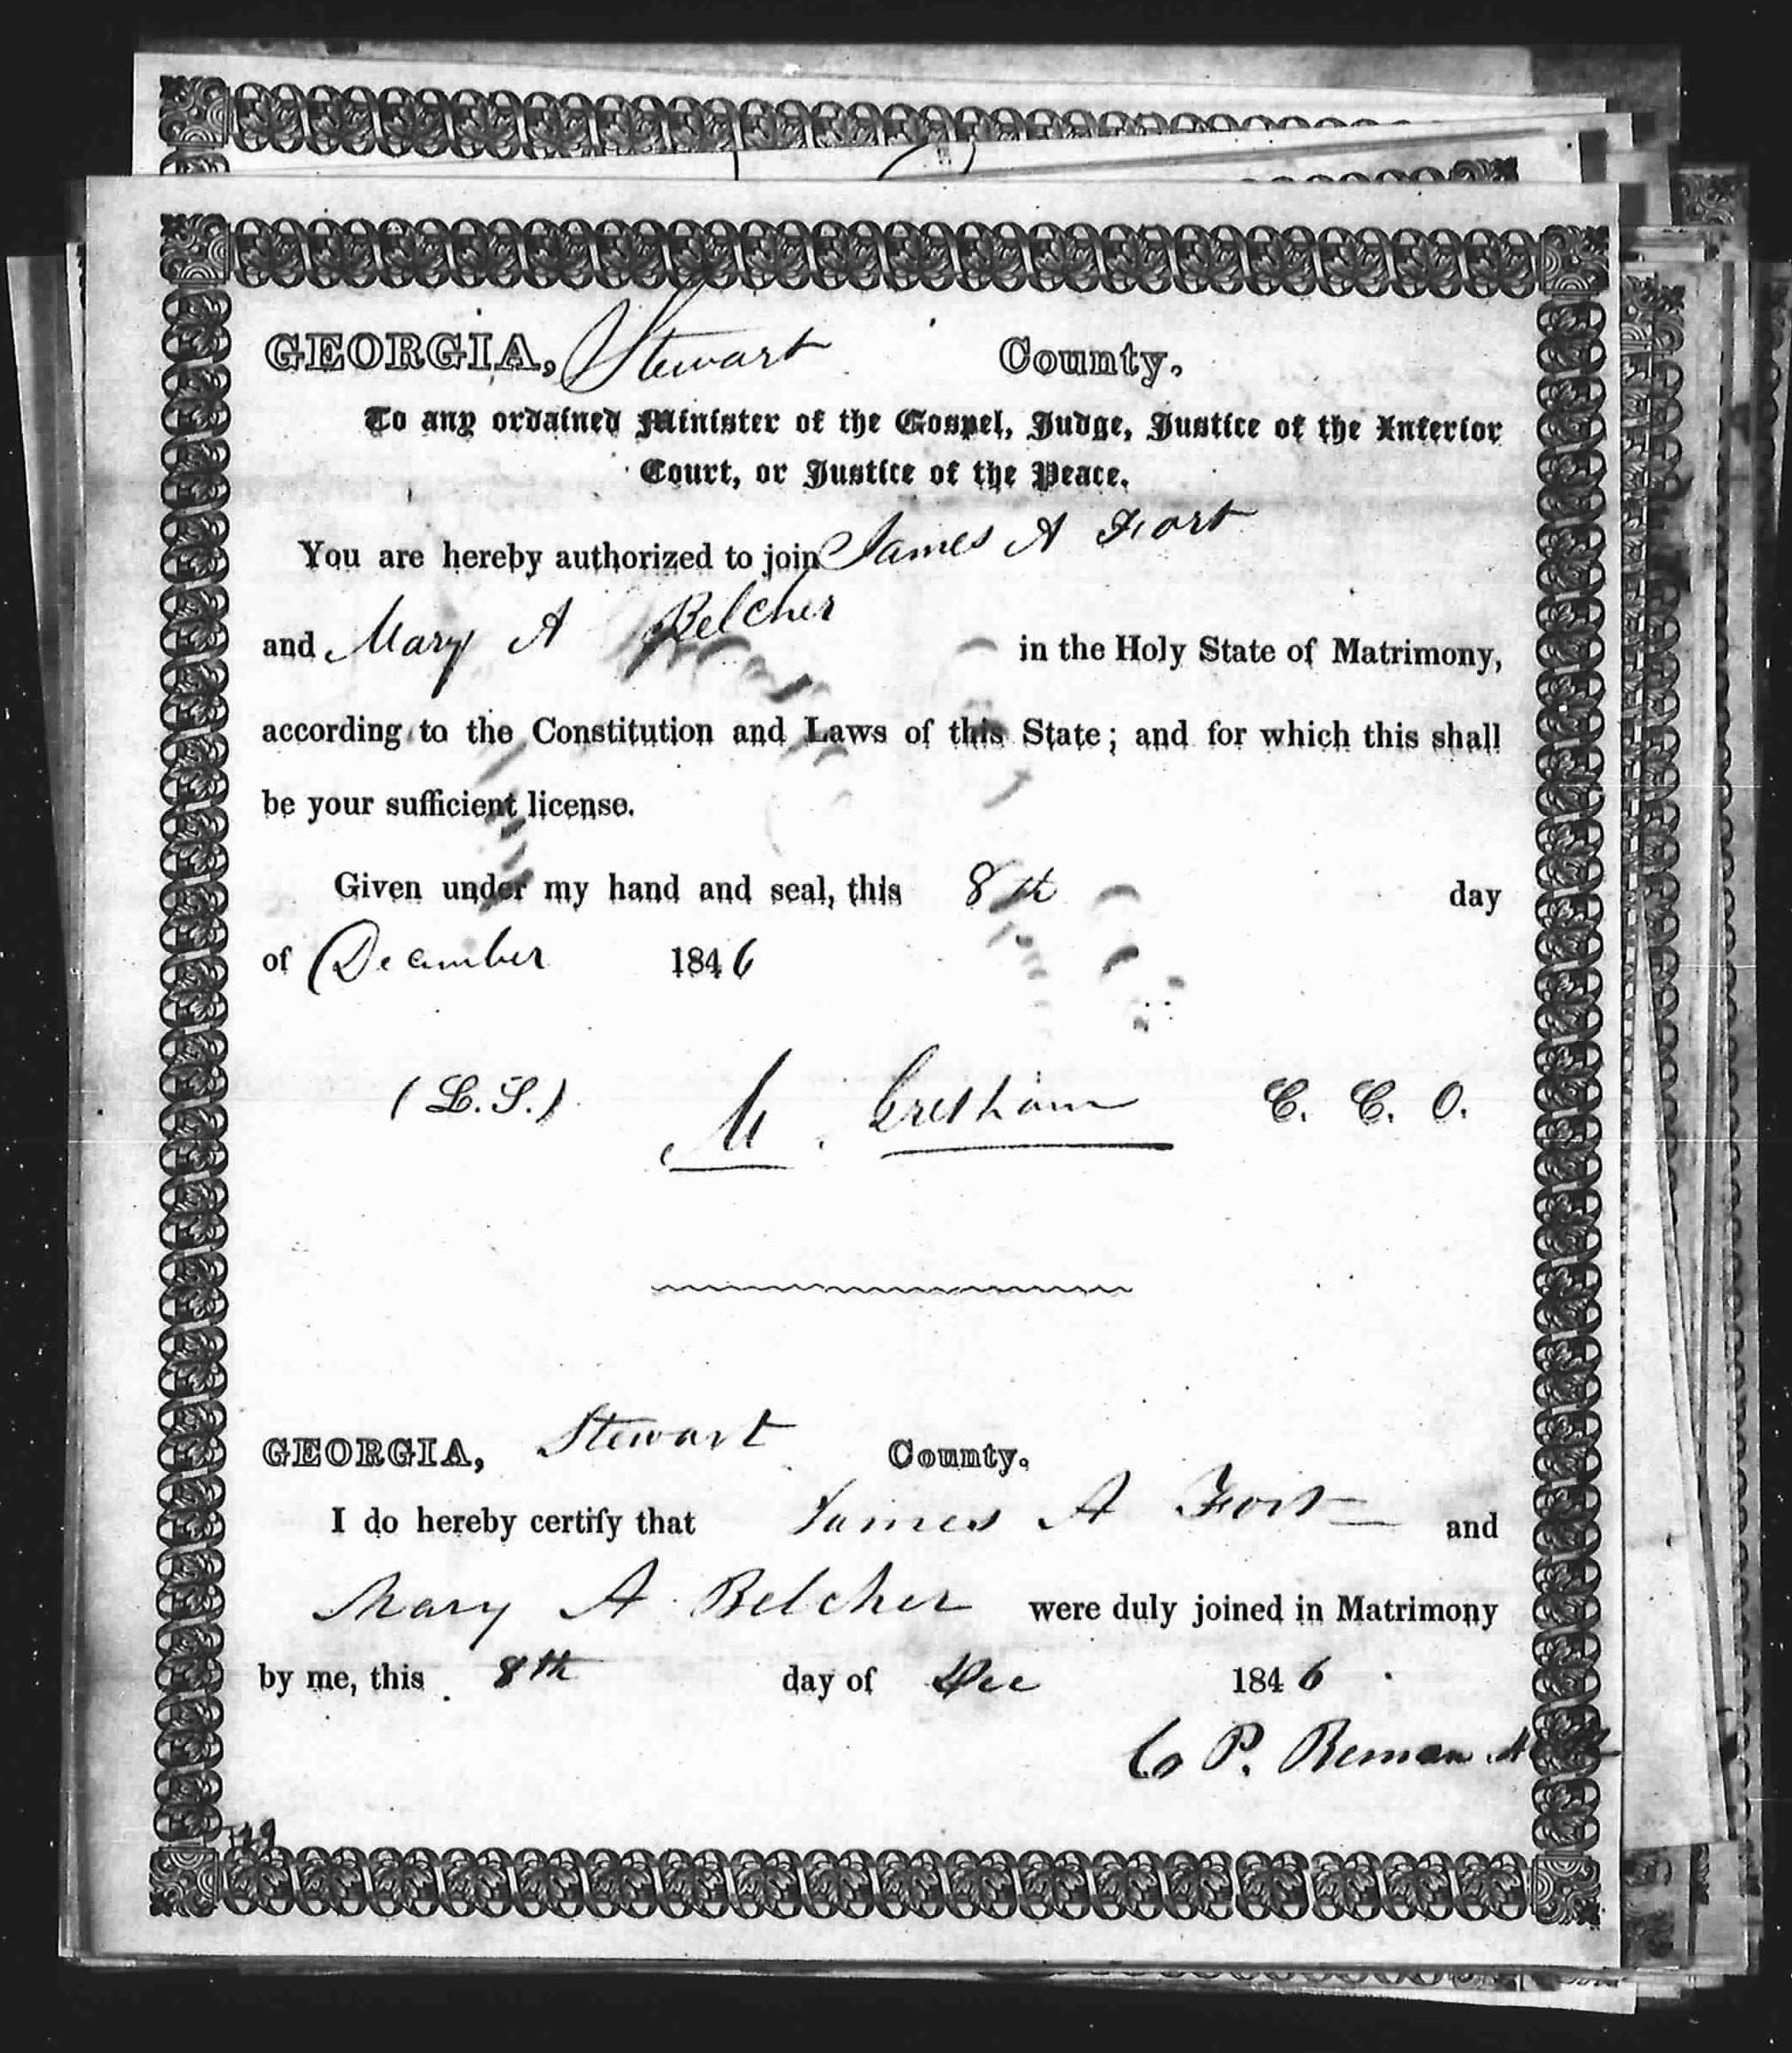 GEORGIA, Stewart County.
To any ordained Minister of the Gospel, Judge, Justice of the Inferior
Court, or Justice of the Peace.
You are hereby authorized to join James A Fort
and Mary A Belcher in the Holy State of Matrimony,
according to the Constitution and Laws of this State; and for which this shall
be your sufficient license.
Given under my hand and seal, this 8th day
of December 1846
(L. S.) M. Gresham C. C. O.
GEORGIA, Stewart County.
I do hereby certify that James A Fort and
Mary A Belcher were duly joined in Matrimony
by me, this 8th day of Dec 1846
C P. Beman